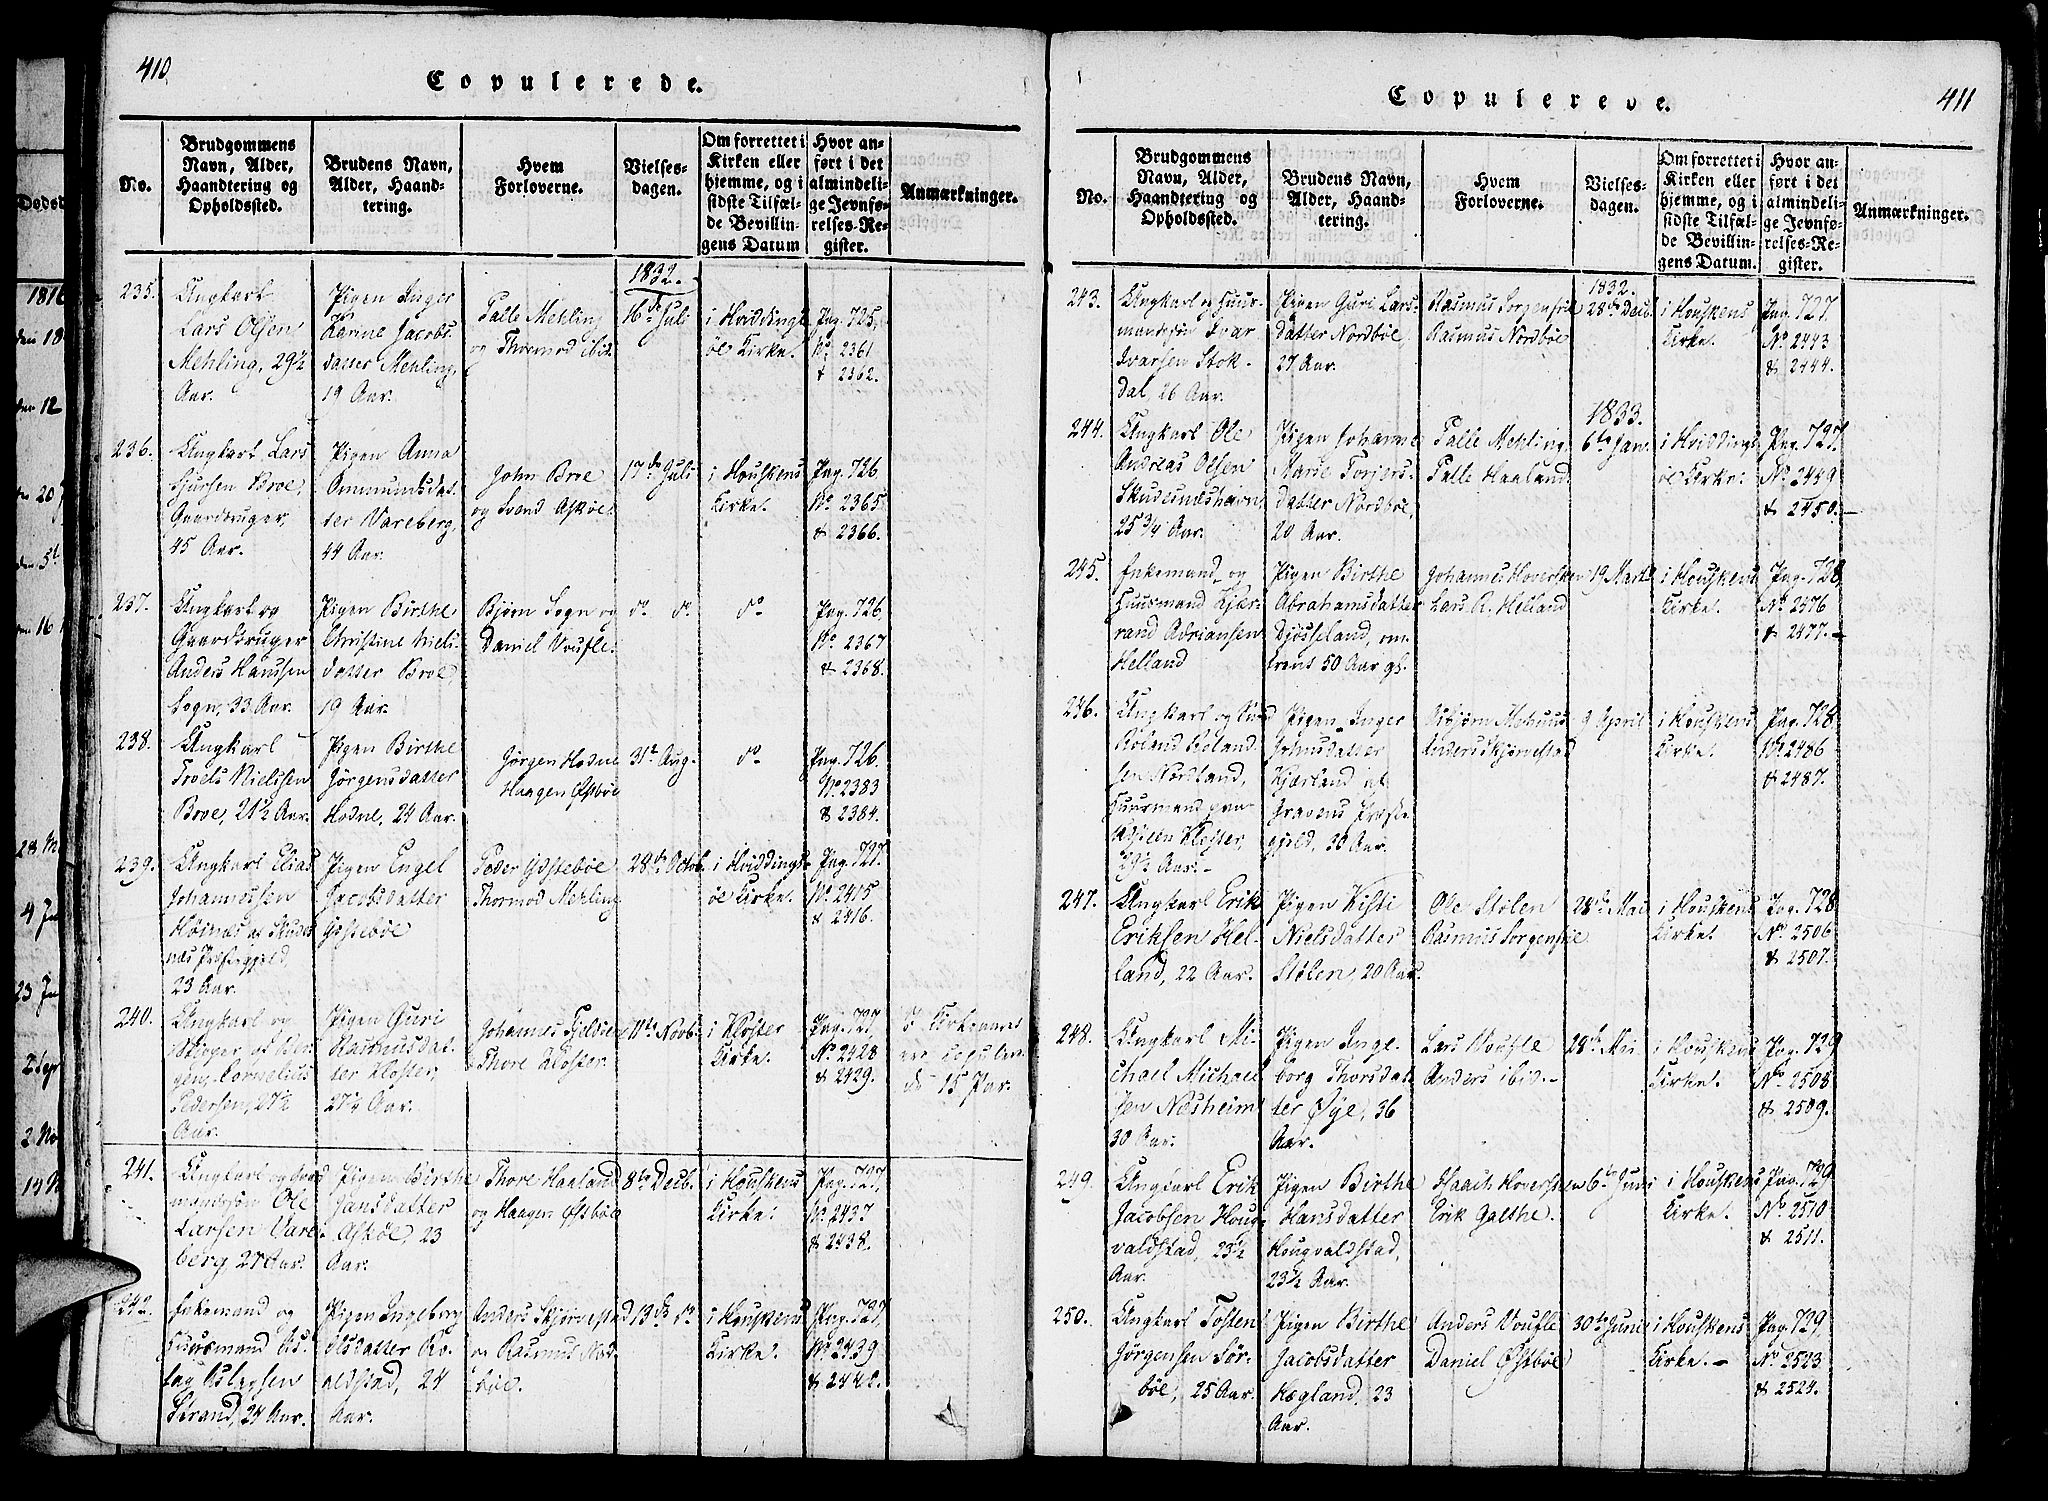 410
Copulerede.
No.
Brudgommens
Navn, Alder,
Haandtering og
Opholdssted.
Brudens Navn,
Alder, Haand-
tering.
Hvem
Forloverne.
Vielses-
dagen.
Om forrettet i
Kirken eller
hjemme, og i
sidste Tilfæl-
de Bevillin-
gens Datum
Hvor an-
ført i det
almindeli-
ge Jevnfø-
relses-Re-
gister.
Anmærkninger.
235.
Ungkarl
Lars Olsen
Mehling, 29½
Aar.
Pigen Inger
Karine Jacobs
datter Mehling,
19 Aar.
Palle Mehling
og Thormod ibid.
1832.
16de Juli
i Hvidding
øe Kirke.
Pag. 725,
No. 2361
& 2362.
236.
Ungkarl Lars
Sjursen Broe,
Gaardbruger,
45 Aar.
Pigen Anna
Ommundsdat-
ter Vareberg,
44 Aar.
John Broe
og Svend Askøe
17de Juli
i Houskens
Kirke.
Pag. 726
No. 2365
& 2366.
237.
Ungkarl og
Gaardbruger
Anders Hansen
Sogn, 33 Aar.
Pigen Birthe
Christine Niels
datter Broe,
19 Aar.
Bjørn Sogn og
Daniel Voufle.
do do
do
Pag. 726,
No. 2367
& 2368.
238.
Ungkarl
Troels Nielssen
Broe, 21½ Aar.
Pigen Birthe
Jørgensdatter
Hodne, 24 Aar.
Jørgen Hodne
Haagen Østbøe
31te Aug.
do
Pag. 726.
No. 2383
& 2384.
239.
Ungkarl Elias
Johannessen
Høines af Skudes
næs Præstegjeld,
23 Aar.
Pigen Engel
Jacobsdatter
Ydstebøe
Peder Ydstebøe
Thormod Mehling
28de Octob.
i Hviddings-
øe Kirke.
Pag. 727.
No. 2415
& 2416.
240.
Ungkarl og
af Ber
gen, Cornelius
Pedersen, 27½
Aar.
Pigen Guri
Rasmusdat-
ter Kloster,
27½ Aar.
Johannes
Thore Kloster.
11te Novb.
i Kloster
Kirke.
Pag. 727,
No. 2428
& 2429.
15 Par.
241.
Ungkarl og Gaard
mandssøn Ole
Larsen Vare-
berg, 27 Aar.
Pigen Birthe
Jansdatter
Askøe, 23
Aar.
Thore Haaland
og Haagen Østbøe
8de Decb.
i Houskens
Kirke.
Pag. 727,
No. 2437
& 2438.
242.
Enkemand og
Huusmand As-
lag Aslagsen
Strand, 24 Aar.
Pigen Ingeborg
Olsdatter Ro-
aldstad, 24
Aar.
Anders Skjørvestad
og Rasmus Nord-
bøe.
13de do
i Houskens
Kirke.
Pag. 727,
No. 2439
& 2440.
411
Copulerede.
No.
Brudgommens
Navn, Alder,
Haandtering og
Opholdssted.
Brudens Navn,
Alder, Haand-
tering.
Hvem
Forloverne.
Vielses-
dagen.
Om forrettet i
Kirken eller
hjemme, og i
sidste Tilfæl-
de Bevillin-
gens Datum.
Hvor an-
ført i det
almindeli-
ge Jevnfø-
relses-Re-
gister.
Anmærkninger.
243.
Ungkarl og Huus-
mandssøn Ivar
Ivarsen Stok-
dal, 26 Aar.
Pigen Guri Lars-
datter Nordbøe,
27 Aar.
Rasmus Sorgenfrie
Rasmus Nordbøe
1832.
28de Decb.
i Houskens
Kirke.
Pag. 727
No. 2443
& 2444.
244.
Ungkarl Ole
Andreas Olsen
Skudesnæshavn,
25¾ Aar.
Pigen Johanne
Marie Torjers-
datter Nordbøe,
20 Aar.
Palle Mehling
Palle Haaland
1833.
6te Jan.
i Hviddings
øe Kirke.
Pag. 727.
No. 2449
& 2450.
245.
Enkemand og
Huusmand Kjær-
rand Adriansen
Helland
Pigen Birthe
Abrahamsdatter
Djøsseland, om-
trent 50 Aar gl.
Johannes Hoversteen
Lars R. Helland
19 Marts
i Houskens
Kirke.
Pag. 728,
No. 2476
& 2477.
246.
Ungkarl og
Roland Roland-
sen Nordland,
Huusmand paa
Kloster,
29½ Aar.
Pigen Inger
Johnsdatter
Kjærland af
Gravens Præste-
gjeld, 30 Aar.
Asbjørn Mehuus
Anders Skjørvestad
9 April
i Houskens
Kirke.
Pag. 728
No. 2486
& 2487.
247.
Ungkarl Erik
Eriksen Hel-
land, 22 Aar.
Pigen Kisti
Nielsdatter
Stølen, 20 Aar.
Ole Stølen
Rasmus Sorgenfrie
28de Mai
i Houskens
Kirke.
Pag. 728
No. 2506
& 2507.
248.
Ungkarl Mi-
chael Michael
sen Næsheim
30 Aar.
Pigen Inge-
borg Thorsdat
ter Øye, 36
Aar.
Lars Voufle
Anders ibid.
28de Mai
i Houskens
Kirke.
Pag. 729
No. 2508
& 2509.
249.
Ungkarl Erik
Jacobsen Houg-
valdstad, 23½
Aar.
Pigen Birthe
Hansdatter
Hougvaldstad,
23½ Aar.
Isaach Hoversteen
Erik Galthe.
6te Juni
i Houskens
Kirke.
Pag. 729
No. 2510
& 2511.
250.
Ungkarl Tosten
Jørgensen Sør-
bøe, 25 Aar.
Pigen Birthe
Jacobsdatter
Hægland, 23
Aar.
Anders Voufle
Daniel Østbøe
30te Juni
i Houskens
Kirke.
Pag. 729,
No. 2523
& 2524.